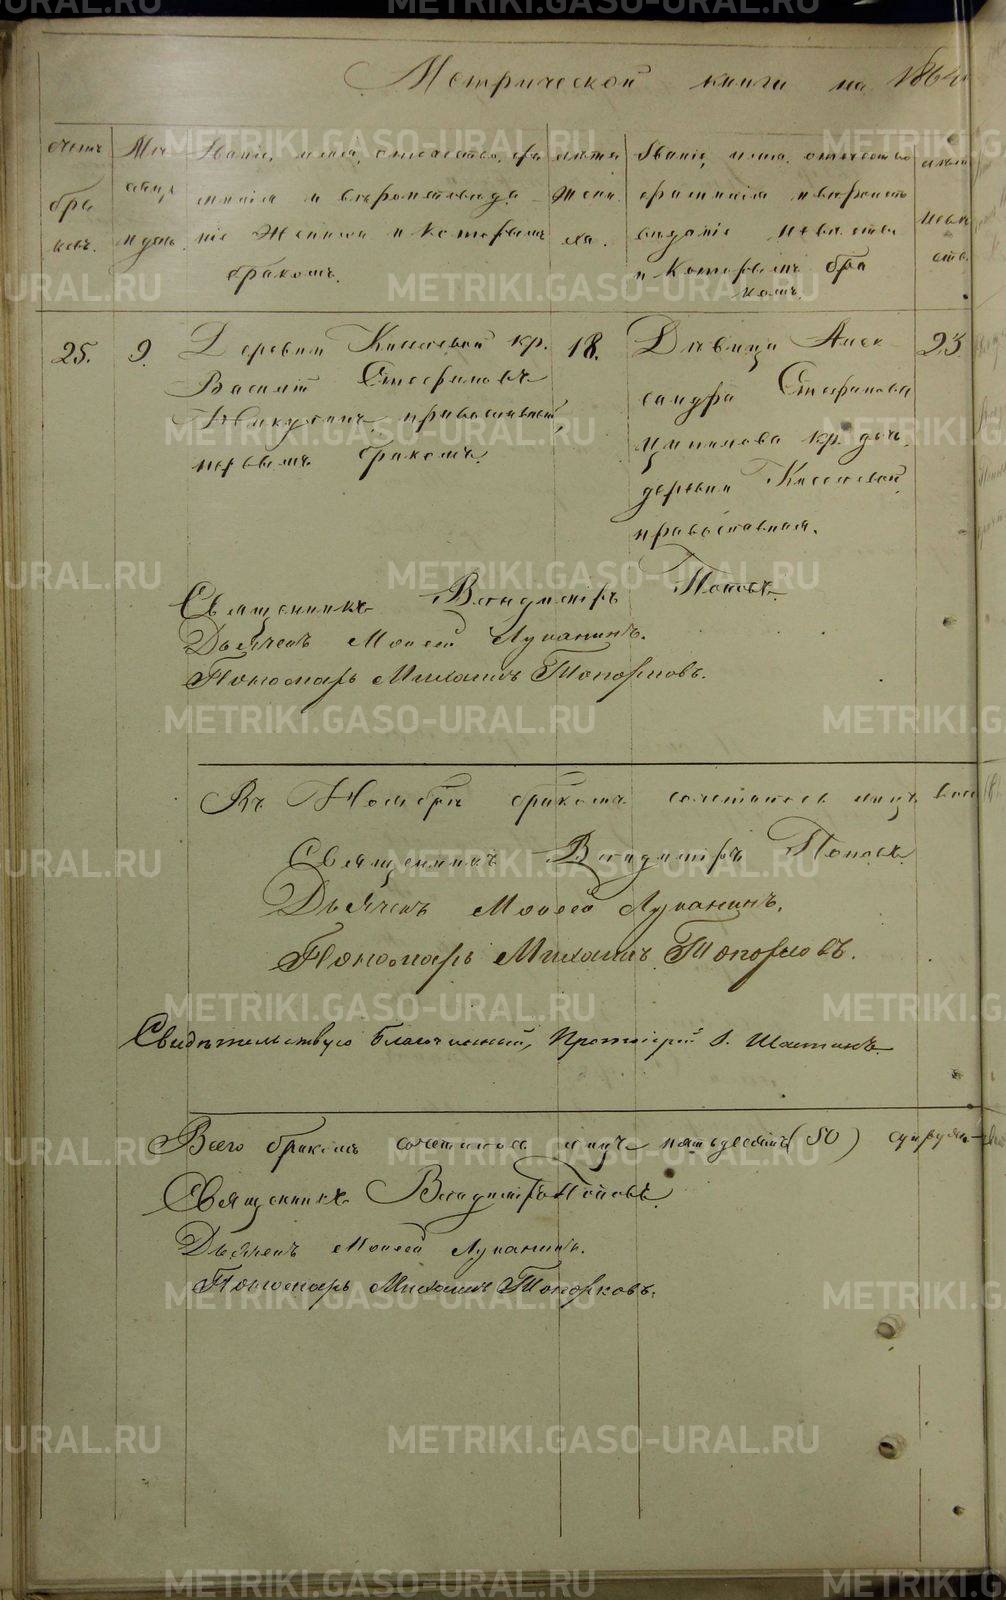 Метрической книги на 1864
счетъ
бра
ковъ.
Мѣ
сяцъ
и день
Званіе, имя, отчество, фа
милія и вѣроисповѣда
ніе жениха и которымъ
бракомъ.
лѣта
жени
ха.
Званіе, имя, отчество
фамилія и вѣроиспо
вѣданіе невѣсты
и которымъ бра
комъ.
лѣта
невѣ
сты.
25.
9.
Деревни Киселевой кр.
Василій Стефановъ
православный,
первымъ бракомъ.
18.
Дѣвица Алек
сандра Стефанова
кр. дочь
деревни Киселевой
православная.
23
Священникъ Владиміръ Поповъ.
Дьячекъ Моисей Лупанинъ.
Пономарь Михаилъ Топорковъ.
Въ Ноябрѣ бракомъ сочеталось лицъ
Священникъ Владиміръ Поповъ.
Дьячекъ Моисей Лупанинъ.
Пономарь Михаилъ Топорковъ.
Свидѣтельствую Благочинный, Протоіерей І. Шастинъ
Всего бракомъ сочеталось лицъ пятьдесятъ (50)
Священникъ Владиміръ Поповъ.
Дьячекъ Моисей Лупанинъ.
Пономарь Михаилъ Топорковъ.
METRIKI.GASO-URAL.RU